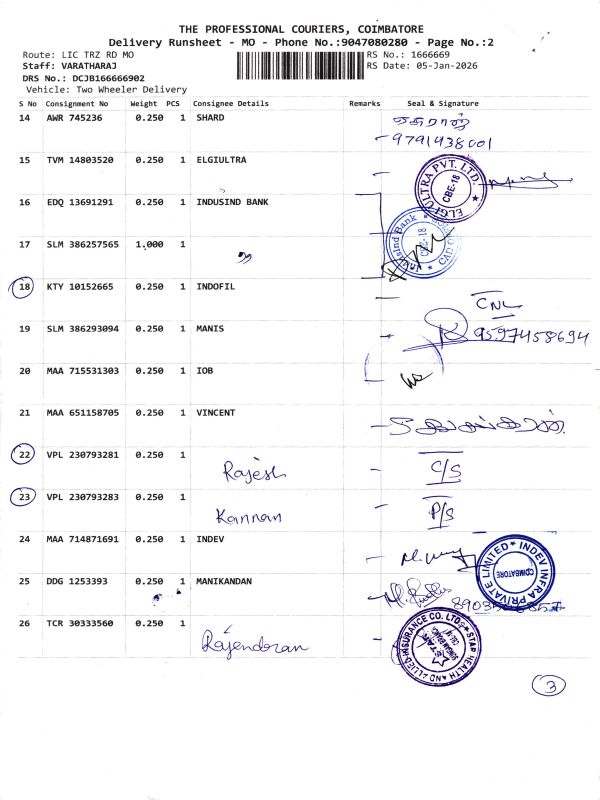 THE PROFESSIONAL COURIERS, COIMBATORE
Delivery Runsheet - MO - Phone No.:9047080280 - Page No.:2
Route: LIC TRZ RD MO RS No.: 1666669
Staff: VARATHARAJ RS Date: 05-Jan-2026
DRS No.: DCJB166666902
Vehicle: Two Wheeler Delivery
S No Consignment No Weight PCS Consignee Details Remarks Seal & Signature
14 AWR 745236 0.250 1 SHARD
9791438001
15 TVM 14803520 0.250 1 ELGIULTRA
ELGI ULTRA PVT. LTD. CBE-18
16 EDQ 13691291 0.250 1 INDUSIND BANK
IndusInd Bank CBE-18
17 SLM 386257565 1.000 1
18 KTY 10152665 0.250 1 INDOFIL
CNL
19 SLM 386293094 0.250 1 MANIS
9597458694
20 MAA 715531303 0.250 1 IOB
21 MAA 651158705 0.250 1 VINCENT
22 VPL 230793281 0.250 1 Rajesh C/S
23 VPL 230793283 0.250 1 Kannan P/S
24 MAA 714871691 0.250 1 INDEV
INDEV INFRA PRIVATE LIMITED COIMBATORE
25 DDG 1253393 0.250 1 MANIKANDAN
26 TCR 30333560 0.250 1 Rajendran
STAR HEALTH AND ALLIED INSURANCE CO. LTD.
3